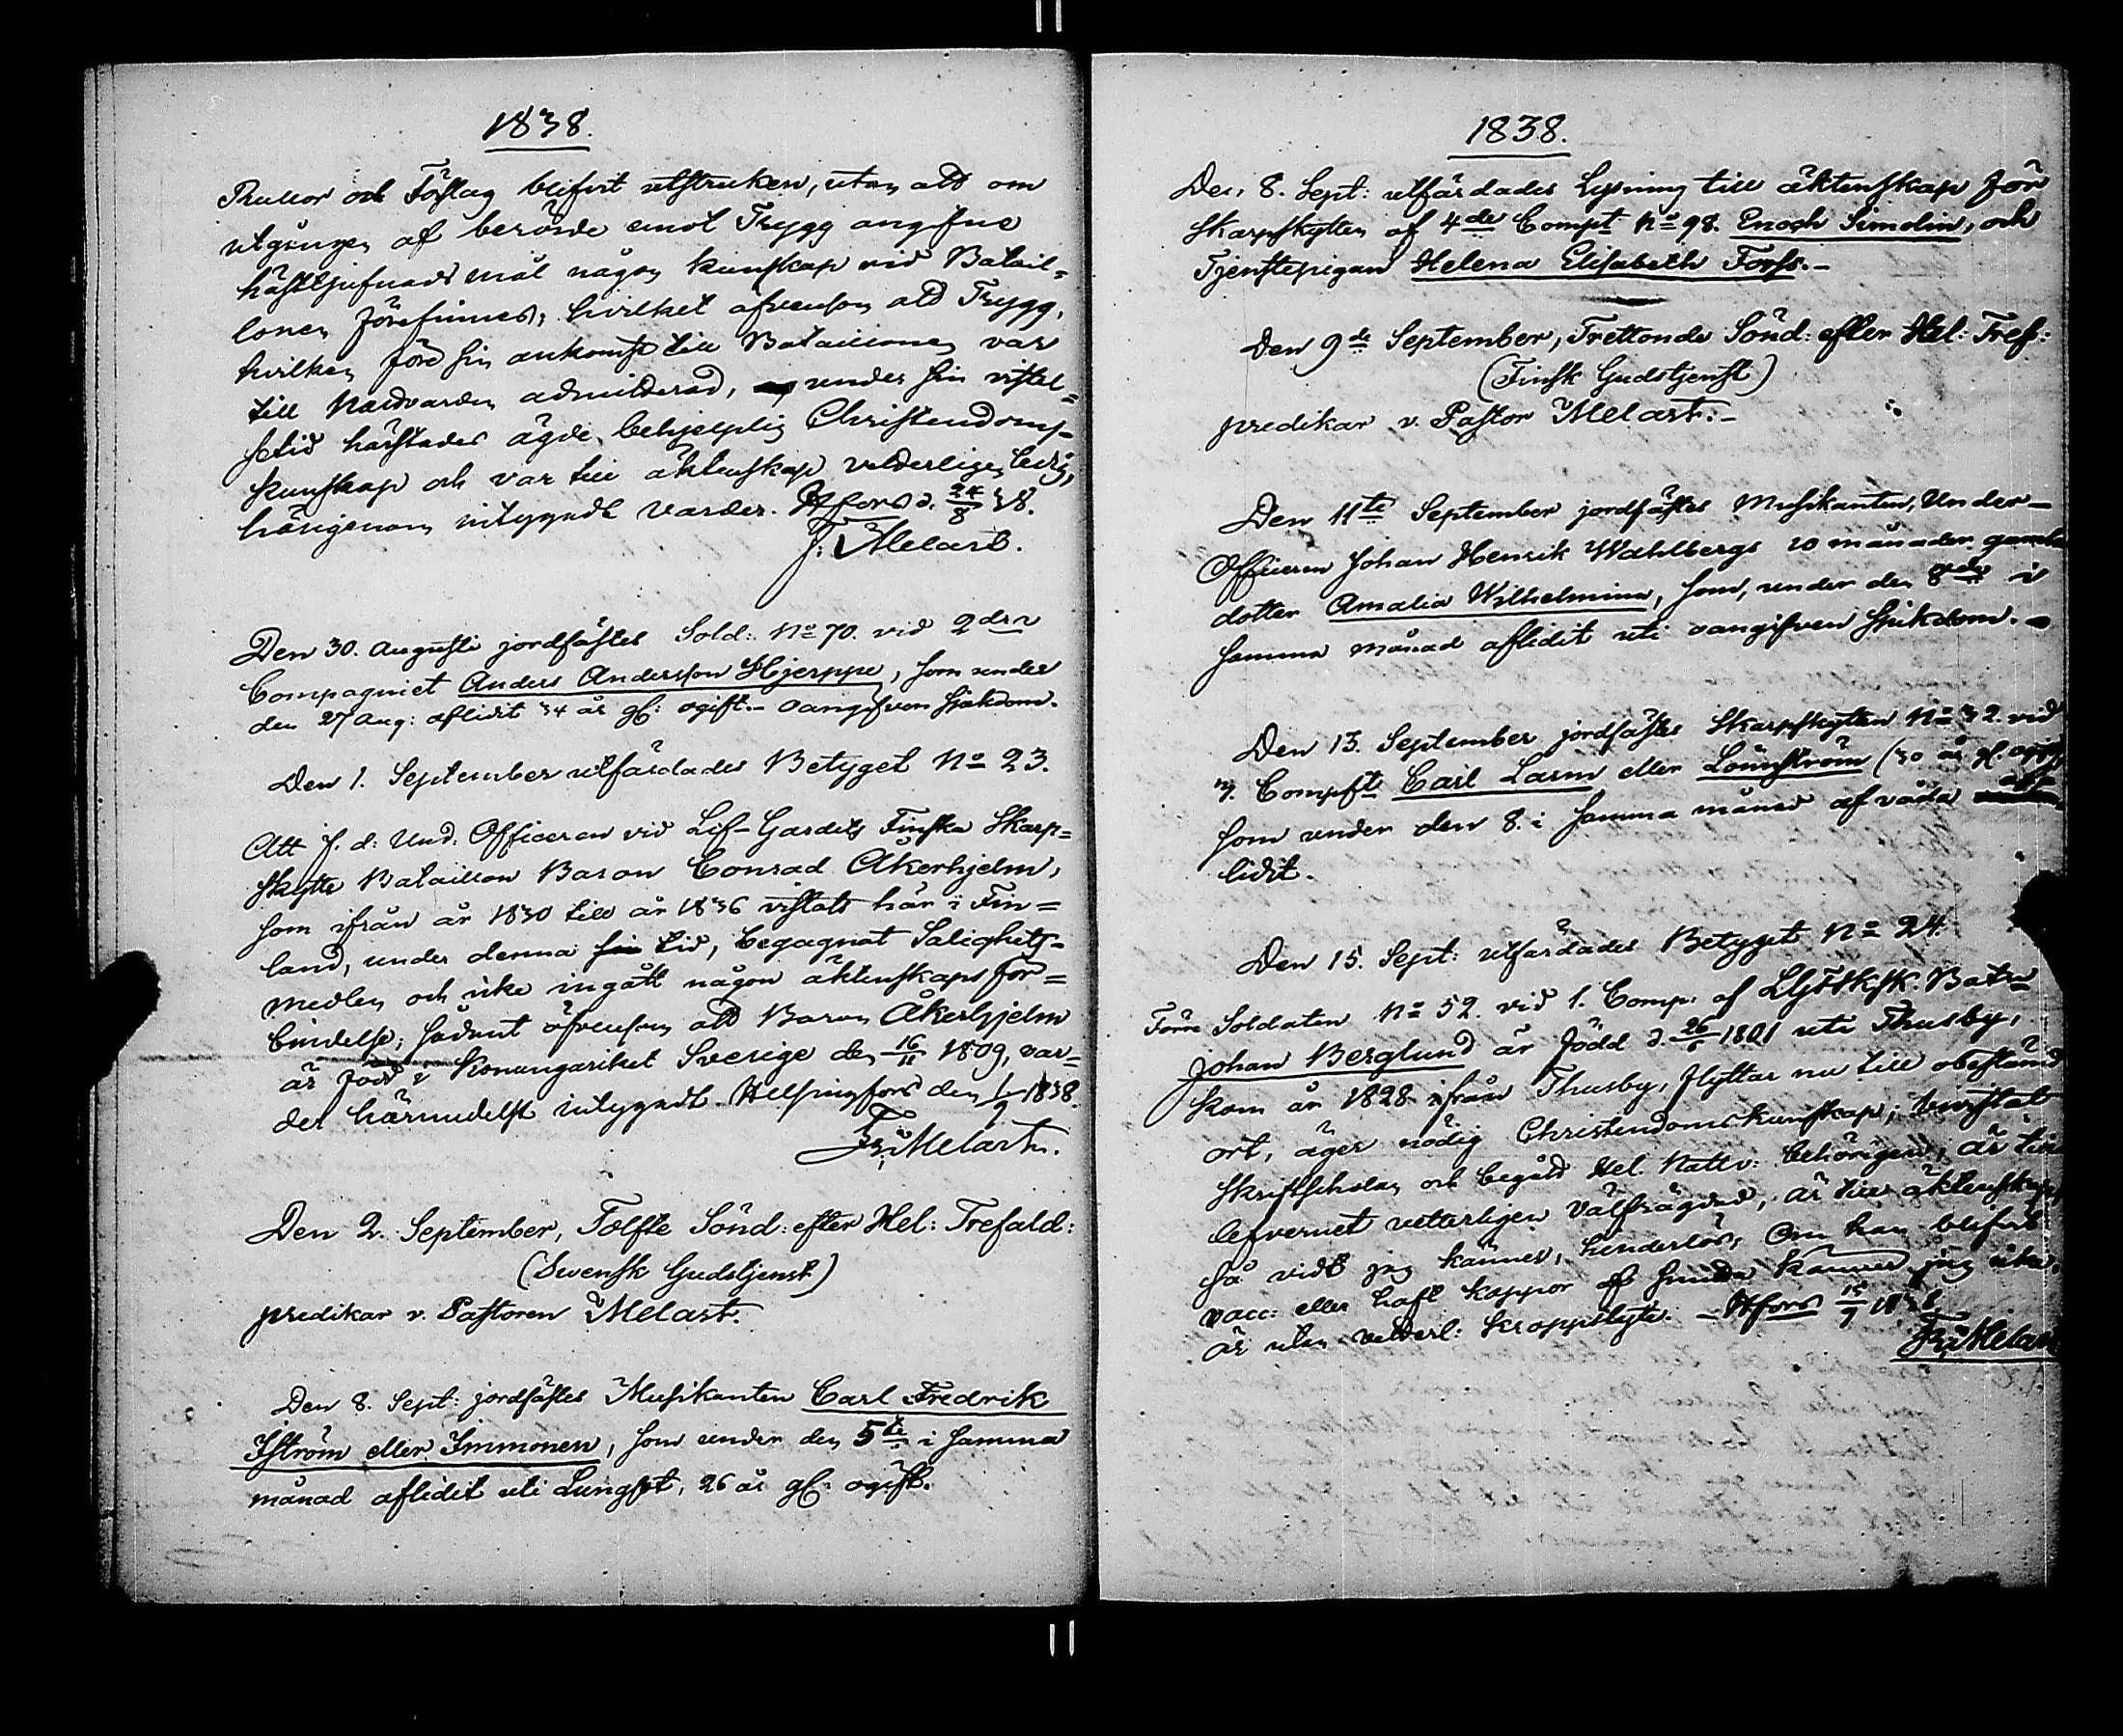 1838.
Rullor och Förslag blifvit utstruken, utan att om
utgången af berörde emot Trygg angifne
hästtjufnads mål någon kunskap vid Batail=
lonen förefinnes, hvilket äfvensom att Trygg,
hvilken före sin ankomst till Bataillonen var
till Nattvarden admitterad, under sin vistel=
setid härstädes ägde behjelplig Christendoms-
kunskap och var till äktenskap vetterligen ledig,
härigenom intygadt varder. Hfors d. 24/8 38.
F. Melart.
Den 30. Augusti jordfästes Sold: No 70. vid 2dra
Compagniet Anders Andersson Hjerppe, som under
den 27 Aug: aflidit 34 år gl: ogift. - oangifven sjukdom.
Den 1. September utfärdades Betyget No 23.
Att f. d: Und: Officeren vid Lif-Gardets Finska Skarp=
skytte Bataillon Baron Conrad Åkerhjelm,
som ifrån år 1830 till år 1836 vistats här i Fin=
land, under denna tid, begagnat Salighets-
medlen och icke ingått någon äktenskaps för=
bindelse; sådant äfvensom att Baron Åkerhjelm
är född i Konungariket Sverige den 16/11 1809, var=
der härmedelst intygadt. Helsingfors den 1/9 1838.
Fr: Melart.
Den 2. September, Tolfte Sönd: efter Hel: Trefald:
(Svensk Gudstjenst)
predikar v. Pastoren Melart.
Den 8. Sept: jordfästes Musikanten Carl Fredrik
Iström eller Immonen, som under den 5te i samma
månad aflidit uti Lungsot, 26 år gl: ogift.
1838.
Den 8. Sept: utfärdades Lysning till äktenskap för
Skarpskytten af 4de Compt No 98. Enoch Simolin, och
Tjenstepigan Helena Elisabeth Forss. -
Den 9de September, Trettonde Sönd: efter Hel: Tref:
(Finsk Gudstjenst)
predikar v. Pastor Melart. -
Den 11te September jordfästes Musikanten, Under-
Officeren Johan Henrik Wahlbergs 10 månader gamla
dotter Amalia Wilhelmina, som, under den 8de i
samma månad aflidit uti oangifven sjukdom. -
Den 13. September jordfästes Skarpskytten No 32. vid
Compts Carl Larm eller Lönnström (30 år gl. ogift)
som under den 8. i samma månad af våda af=
lidit.
Den 15. Sept: utfärdades Betyget No 24.
Förre Soldaten No 52. vid 1. Comp. af LGFSksk. Batn
Johan Berglund är född d. 26/6 1801 uti Thusby,
kom år 1828 ifrån Thusby, flyttar nu till obestämd
ort, äger nödig Christendomskunskap, bivistat
Skriftskolan och begått Hel. Nattv: behörigen, är till
lefvernet vetterligen välfrägdad, är till äktenskap,
så vidt jag känner, hinderlös, Om han blifvit
vacc: eller haft koppor känner jag icke,
är utan vetterl: kroppslyte. - Hfors 15/9 1838.
Fr: Melart